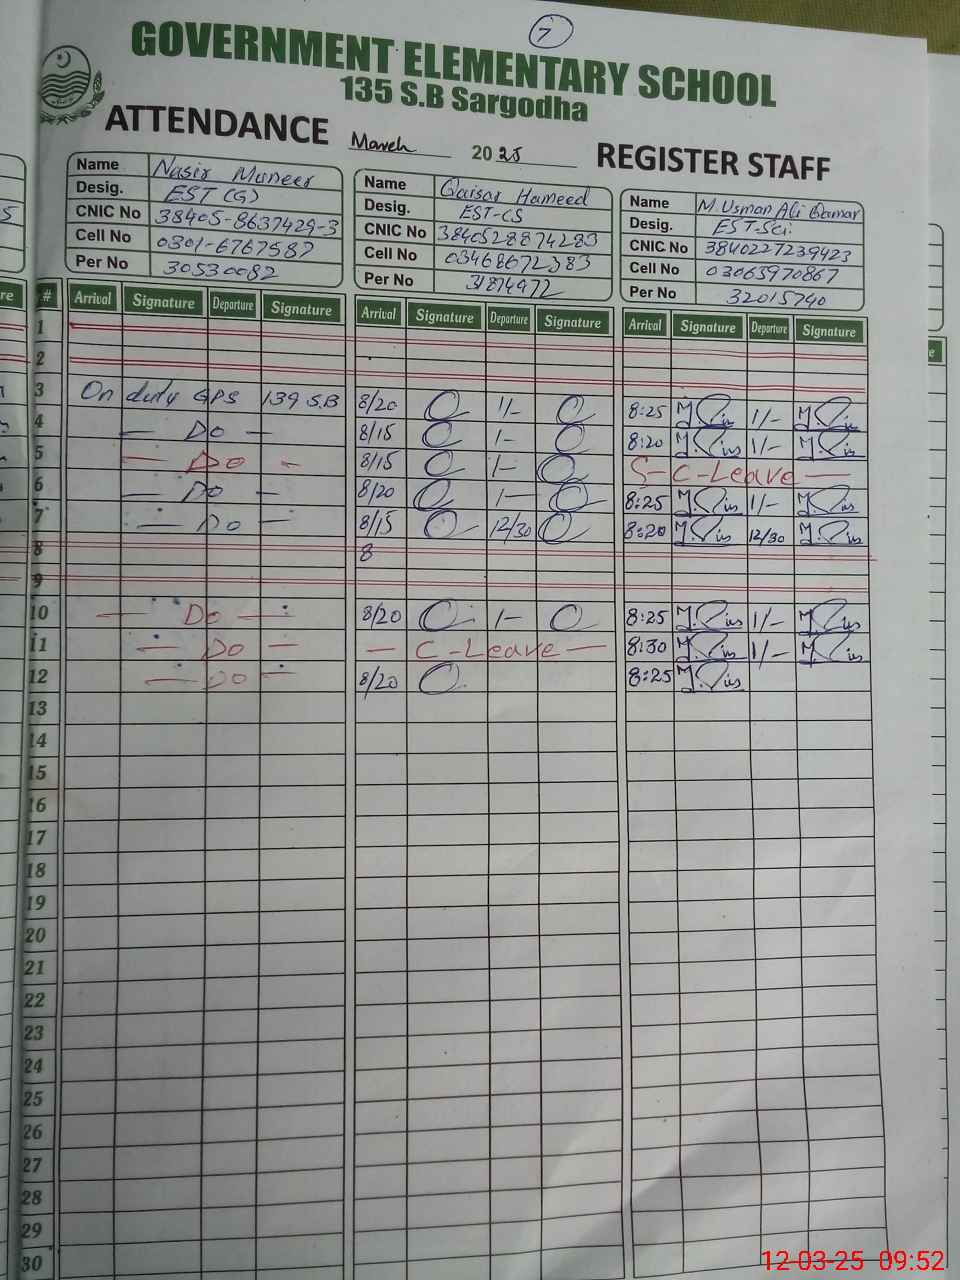 7
GOVERNMENT ELEMENTARY SCHOOL
135 S.B Sargodha
ATTENDANCE March 2025 REGISTER STAFF
Name Nasir Muneer
Desig. EST (G)
CNIC No 38405-8637429-3
Cell No 0301-6767587
Per No 30530082
Name Qaisar Hameed
Desig. EST-CS
CNIC No 3840528874283
Cell No 03468672383
Per No 31874972
Name M.Usman Ali Qamar
Desig. EST-Sci
CNIC No 3840227239423
Cell No 03065970867
Per No 32015740
# Arrival Signature Departure Signature Arrival Signature Departure Signature Arrival Signature Departure Signature
1
2
3 On duty GPS 139 S.B 8/20 1/- 8:25 1/-
4 — Do — 8/15 1- 8:20 1/-
5 — Do — 8/15 1- S-C-Leave —
6 — Do — 8/20 1- 8:25 1/-
7 — Do — 8/15 12/30 8:20 12/30
8 8
9
10 — Do — 8/20 1- 8:25 1/-
11 — Do — — C-Leave — 8:30 1/-
12 — Do — 8/20 8:25
13
14
15
16
17
18
19
20
21
22
23
24
25
26
27
28
29
30
12-03-25 09:52